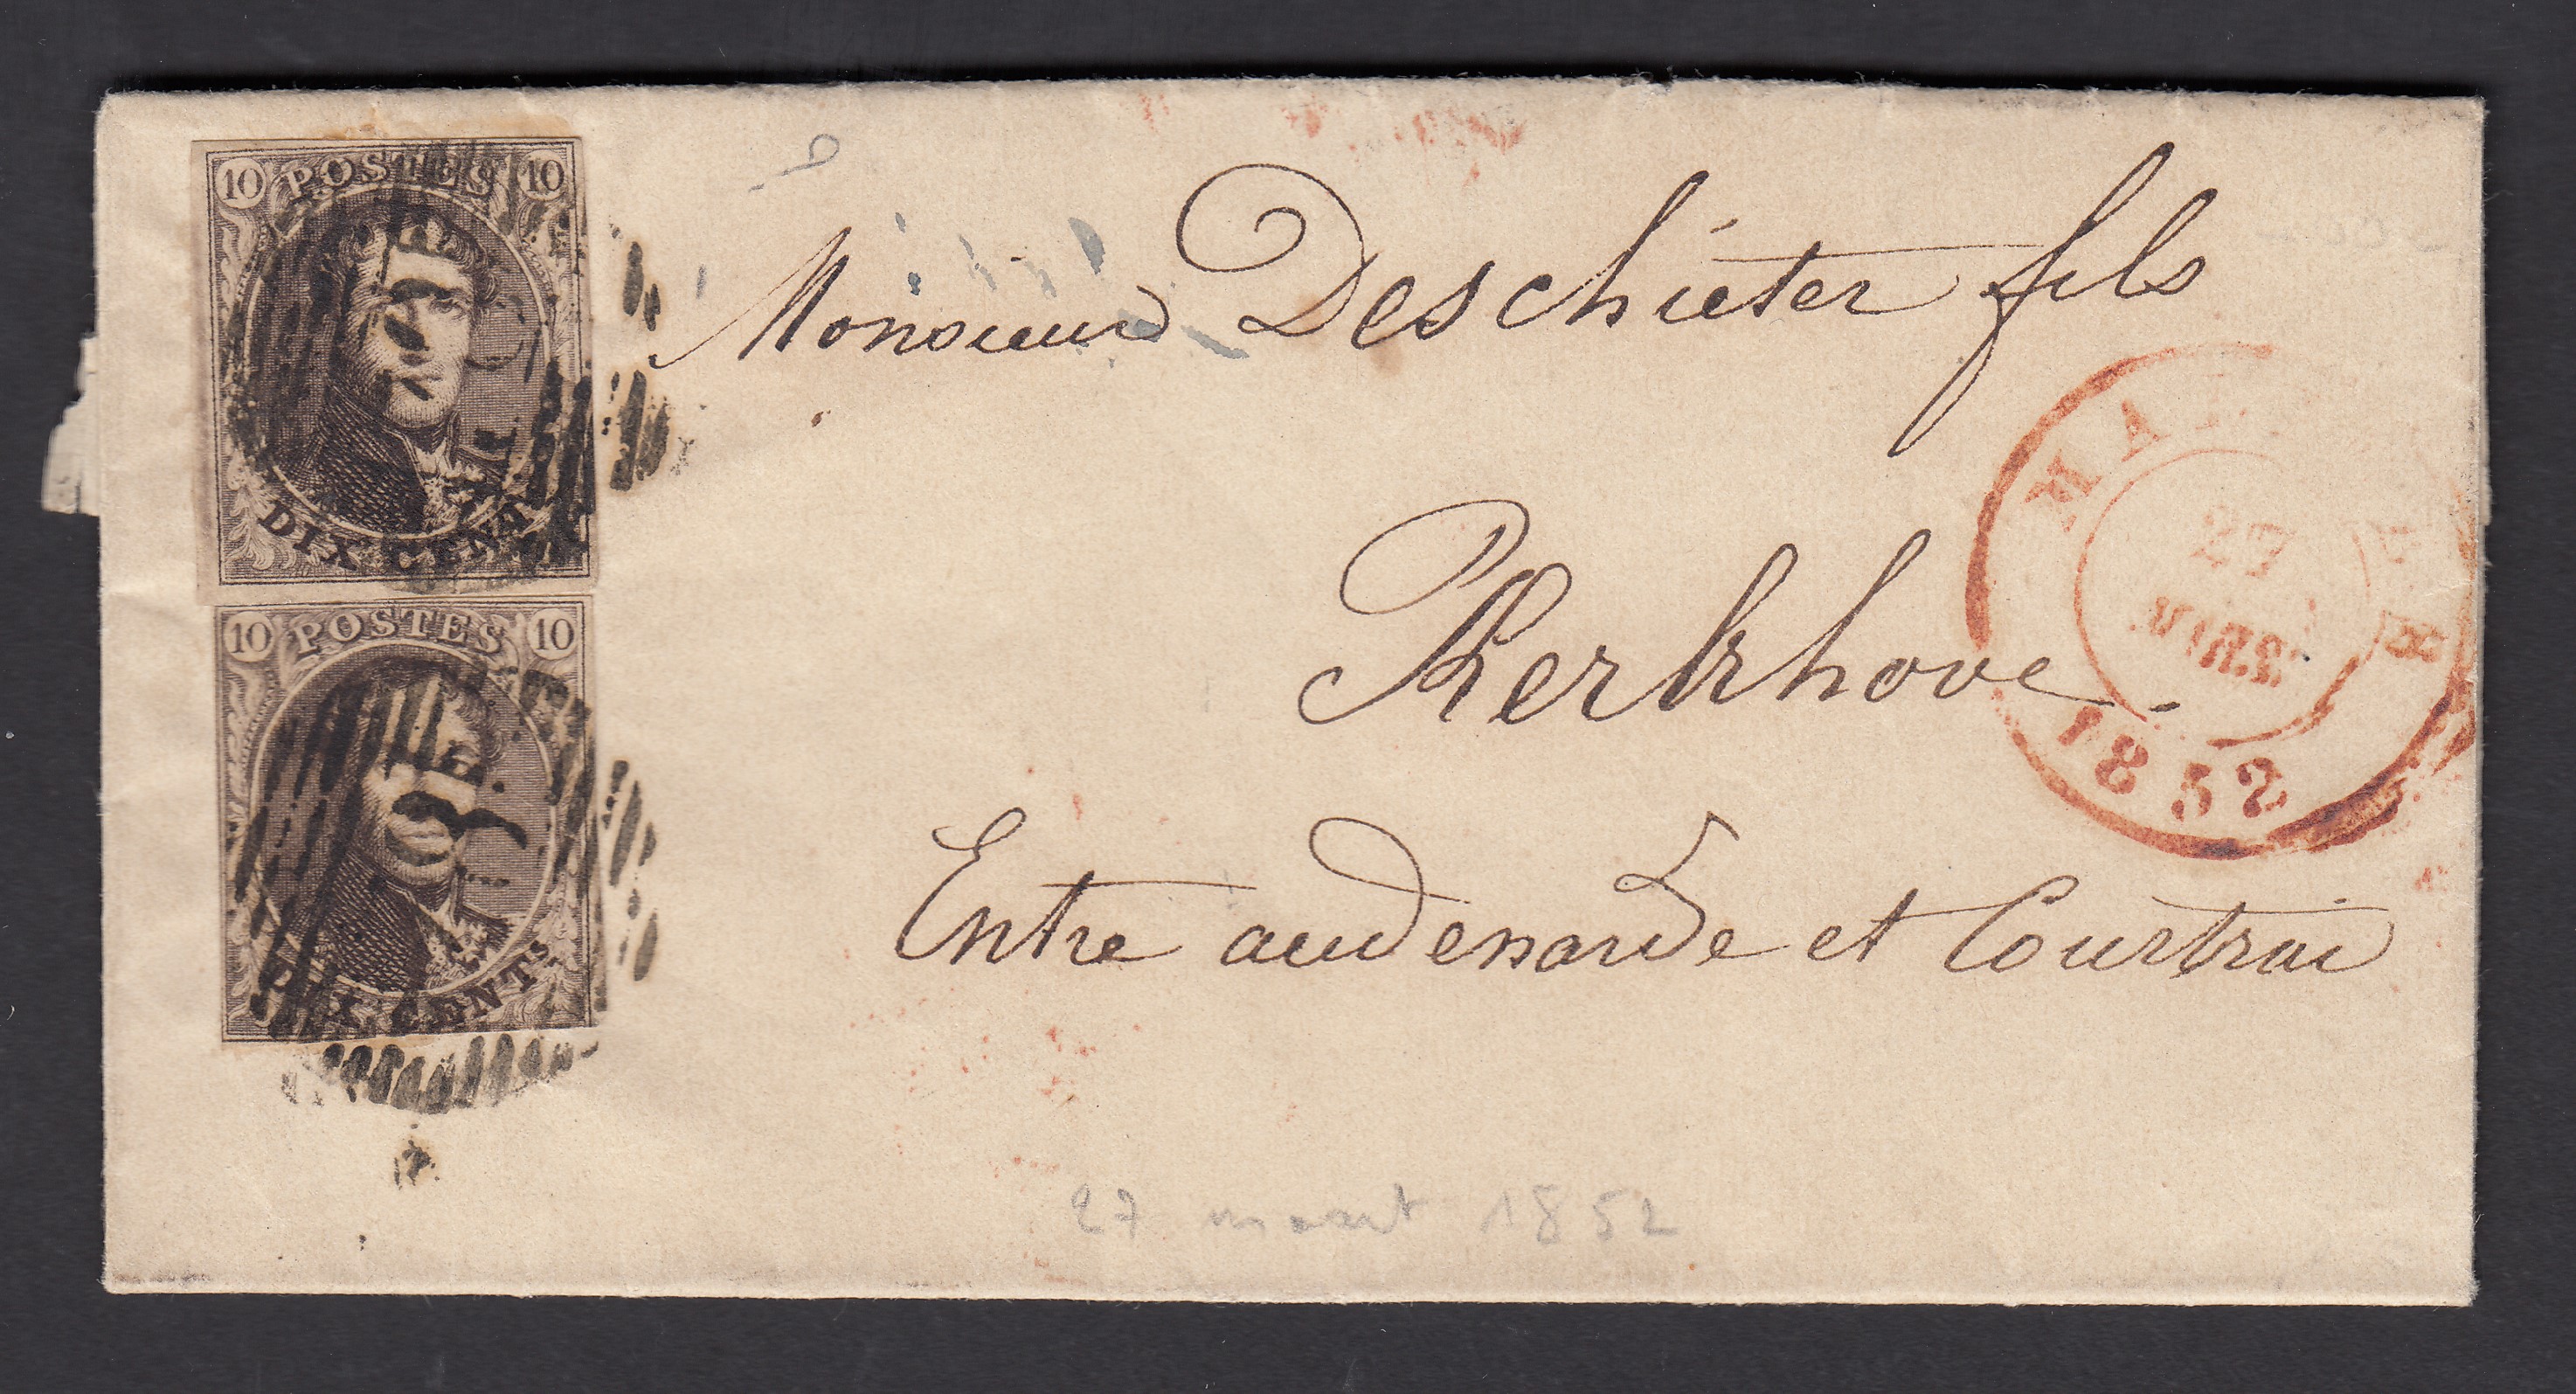 10 POSTES 10
DIX CENTS
10 POSTES 10
DIX CENTS
Monsieur Deschieter fils
Kerkhove.
Entre audenarde et Courtrai
27
MARS
1852
27 maart 1852